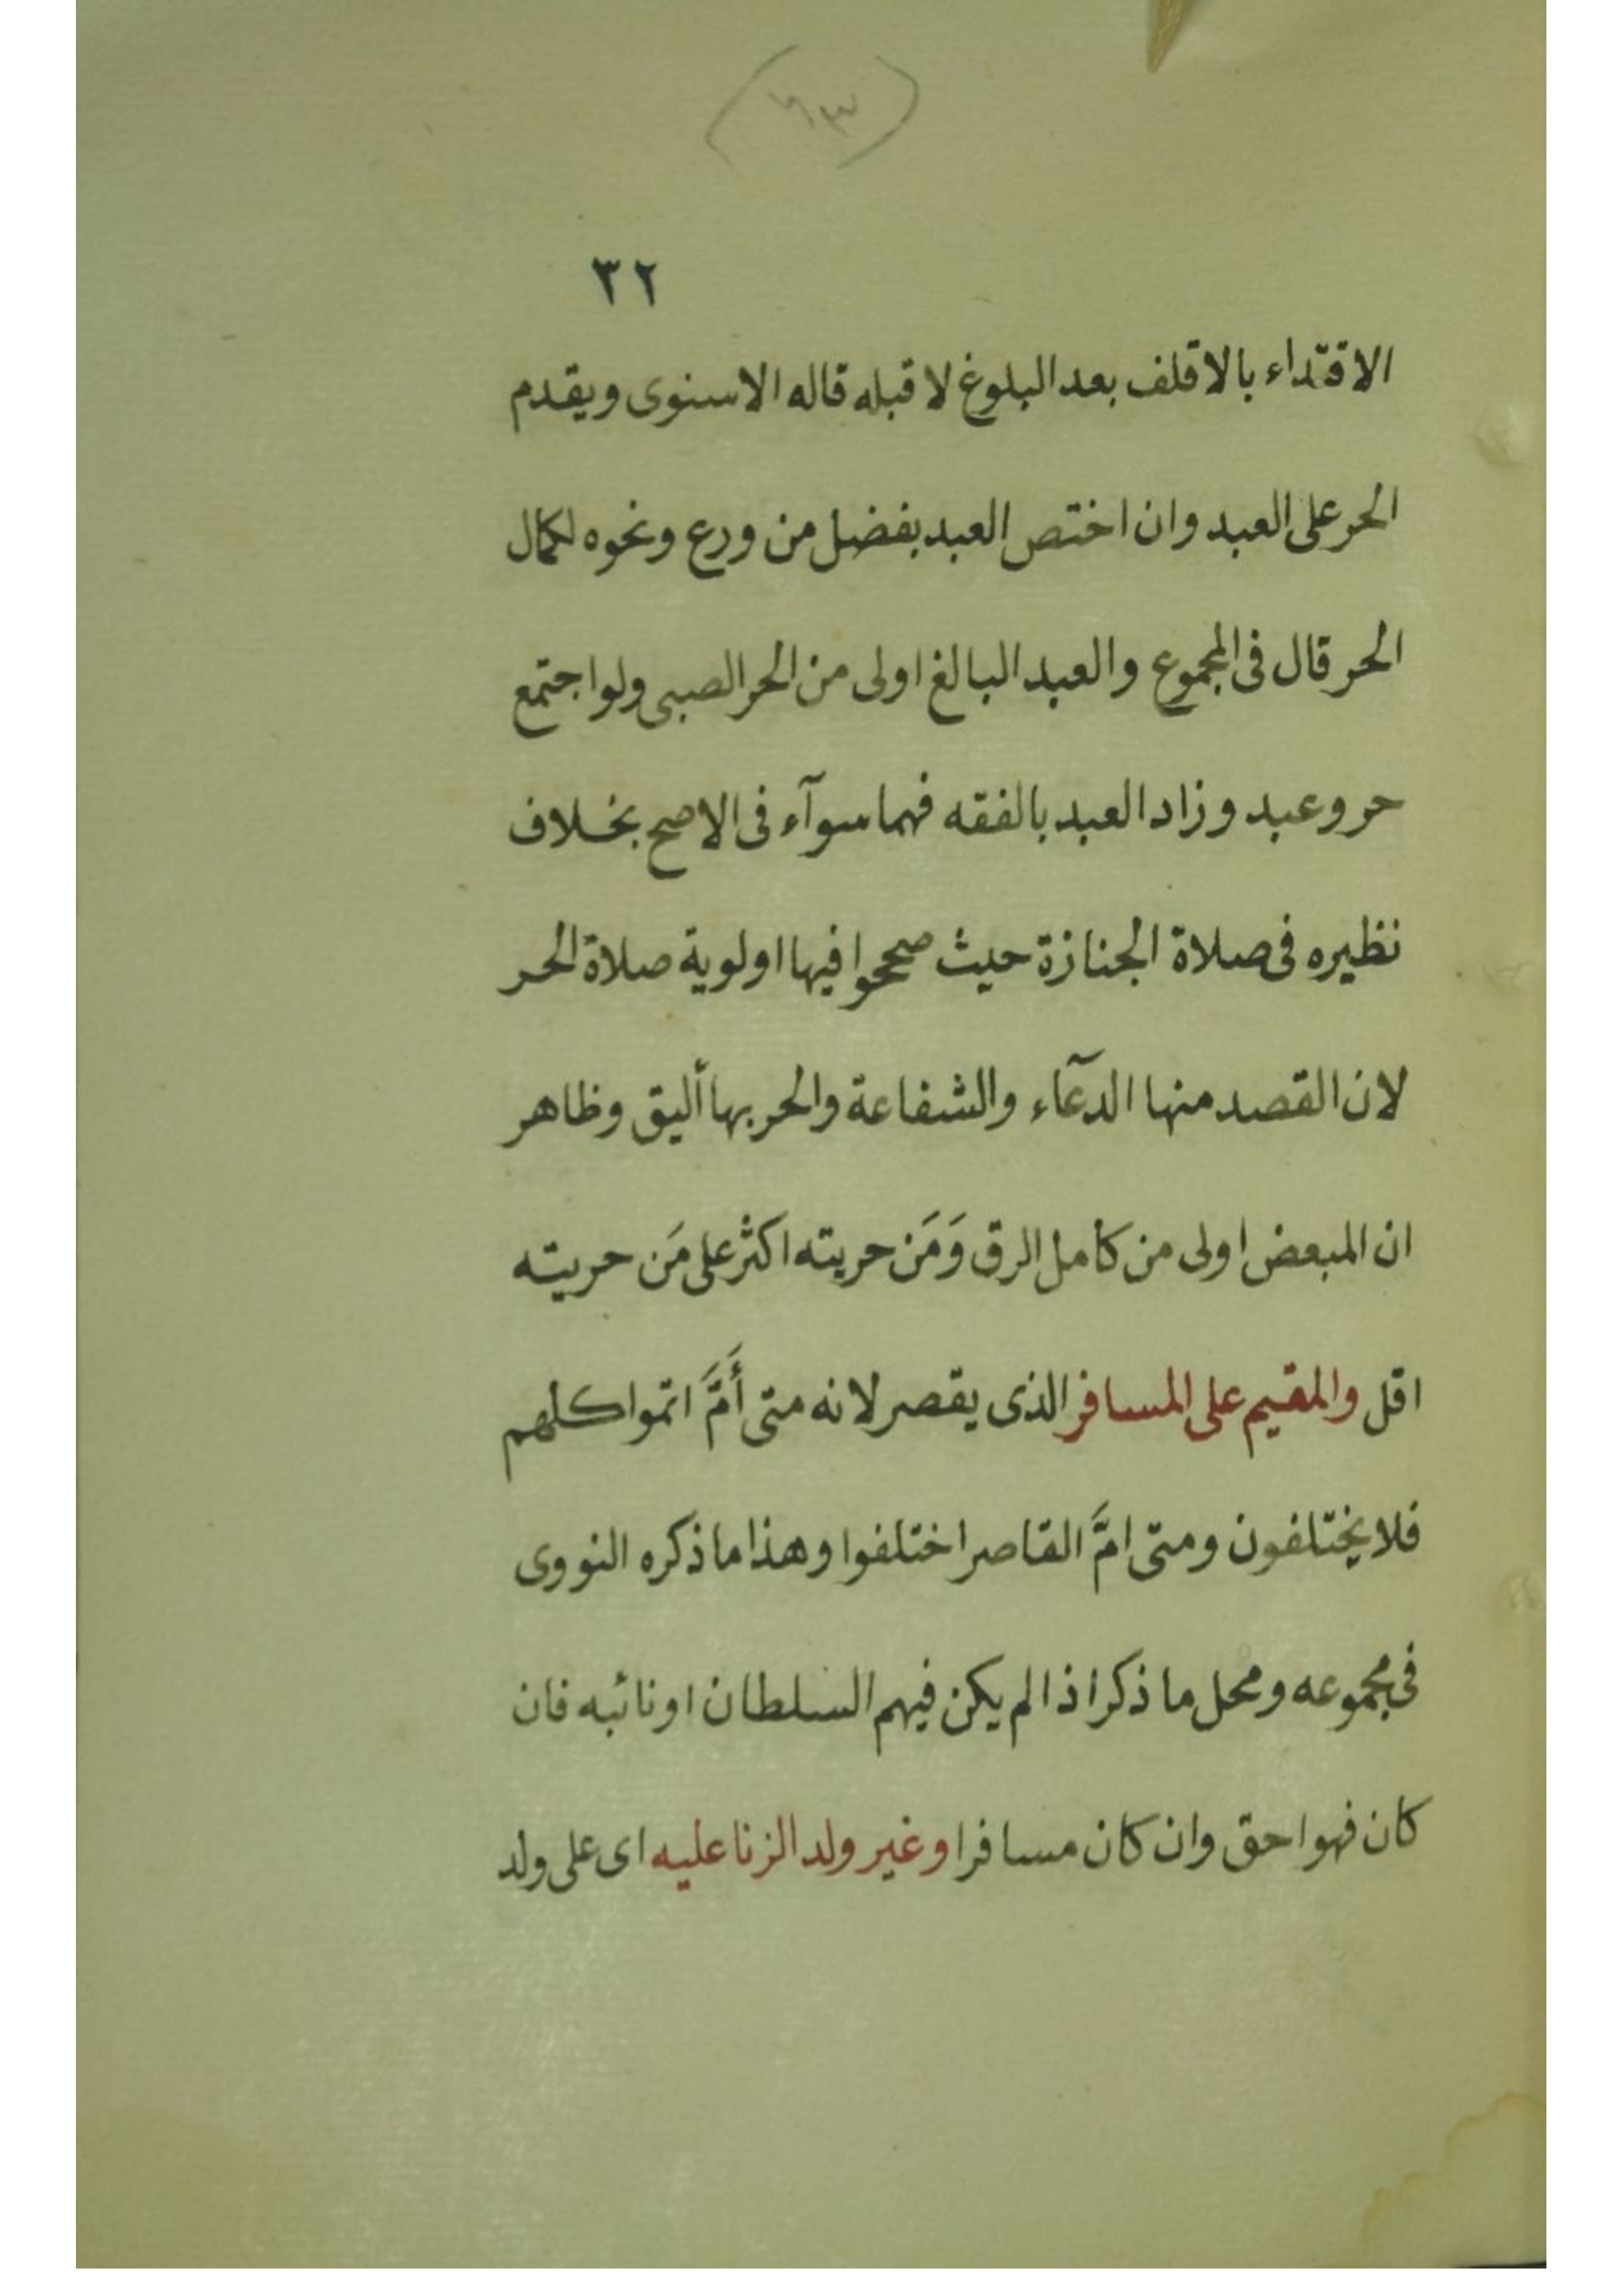 (٦٣)
٣٢
الاقتداء بالاقلف بعد البلوغ لا قبله قاله الاسنوى ويقدم
الحر على العبد وان اختص العبد بفضل من ورع ونحوه لكمال
الحر قال فى المجموع والعبد البالغ اولى من الحر الصبى ولو اجتمع
حر وعبد وزاد العبد بالفقه فهما سوآء فى الاصح بخلاف
نظيره فى صلاة الجنازة حيث صححوا فيها اولوية صلاة الحر
لان القصد منها الدعآء والشفاعة والحر بها أليق وظاهر
ان المبعض اولى من كامل الرق وَمَن حريته اكثر على مَن حريته
اقل والمقيم على المسافر الذى يقصر لانه متى أَمَّ اتموا كلهم
فلا يختلفون ومتى امَّ القاصر اختلفوا وهذا ما ذكره النووى
فى مجموعه ومحل ما ذكر اذا لم يكن فيهم السلطان او نائبه فان
كان فهو احق وان كان مسافرا وغير ولد الزنا عليه اى على ولد